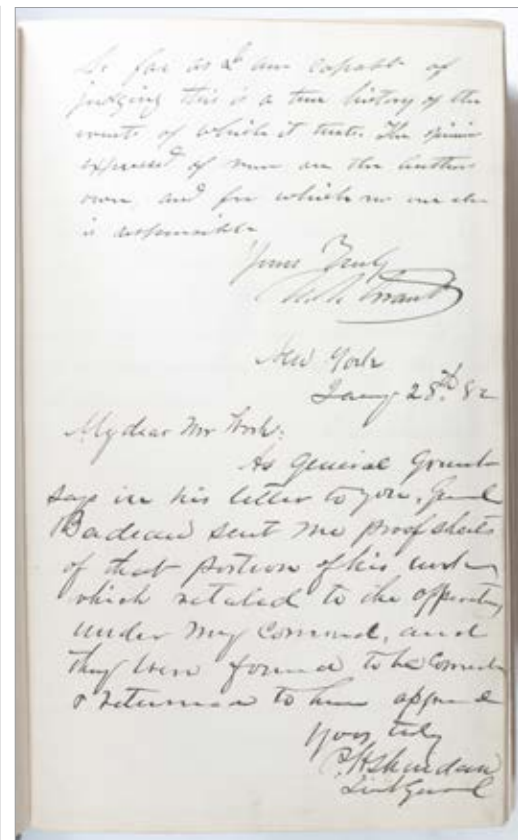 So far as I am capable of
judging this is a true history of the
events of which it treats. The opinions
expressed of men are the authors
own, and for which no one else
is responsible
Yours Truly
U.S. Grant
New York
Jany 28th 82
My dear Mr Work:
As General Grant
says in his letter to you, Genl
Badeau sent me proof sheets
of that portion of his work
which related to the operations
under my command, and
they were found to be correct
& returned to him approved
Yours truly
P.H. Sheridan
Lieut General